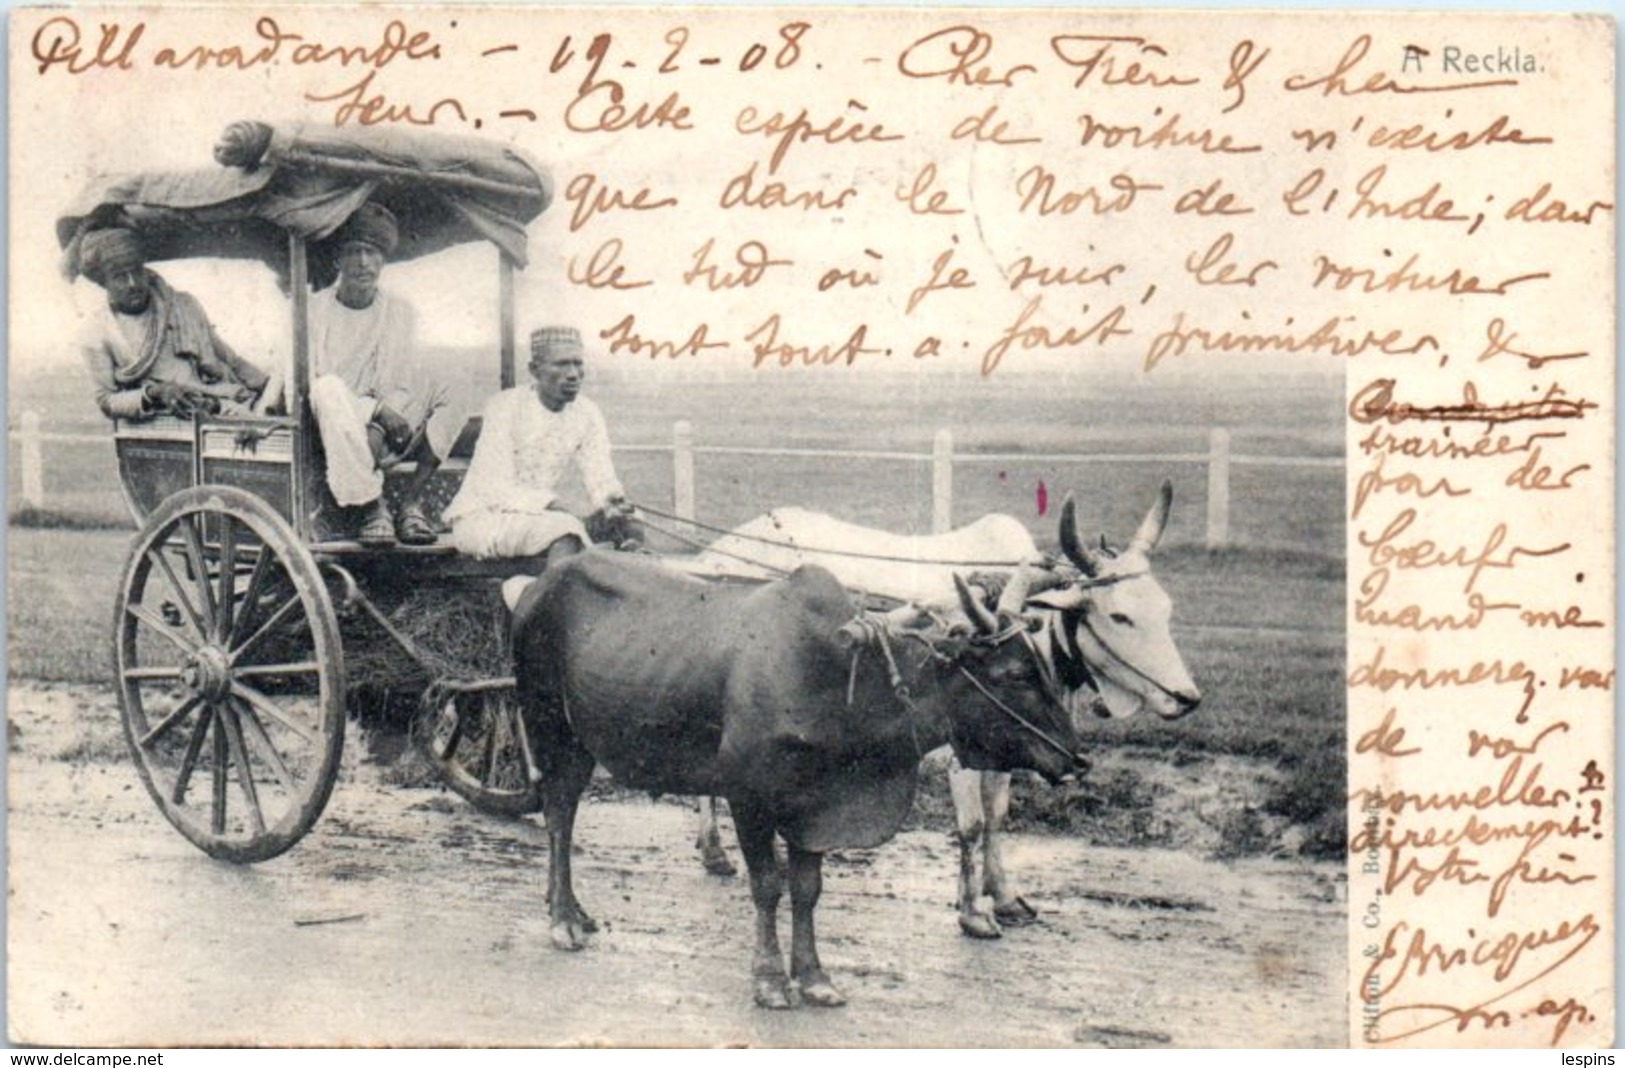 Pillavadandei - 19-2-08. - Cher Frère & chère
A Reckla.
Sœur. - Cette espèce de voiture n'existe
que dans le Nord de l'Inde; dans
le Sud où je suis, les voitures
sont tout. a. fait primitives, &
trainées
par des
bœufs
Quand me
donnerez-vous
de vos
nouvelles
directement?
Votre frère
Bricquez
m. ap.
Clifton & Co., Bombay.
www.delcampe.net
lespins